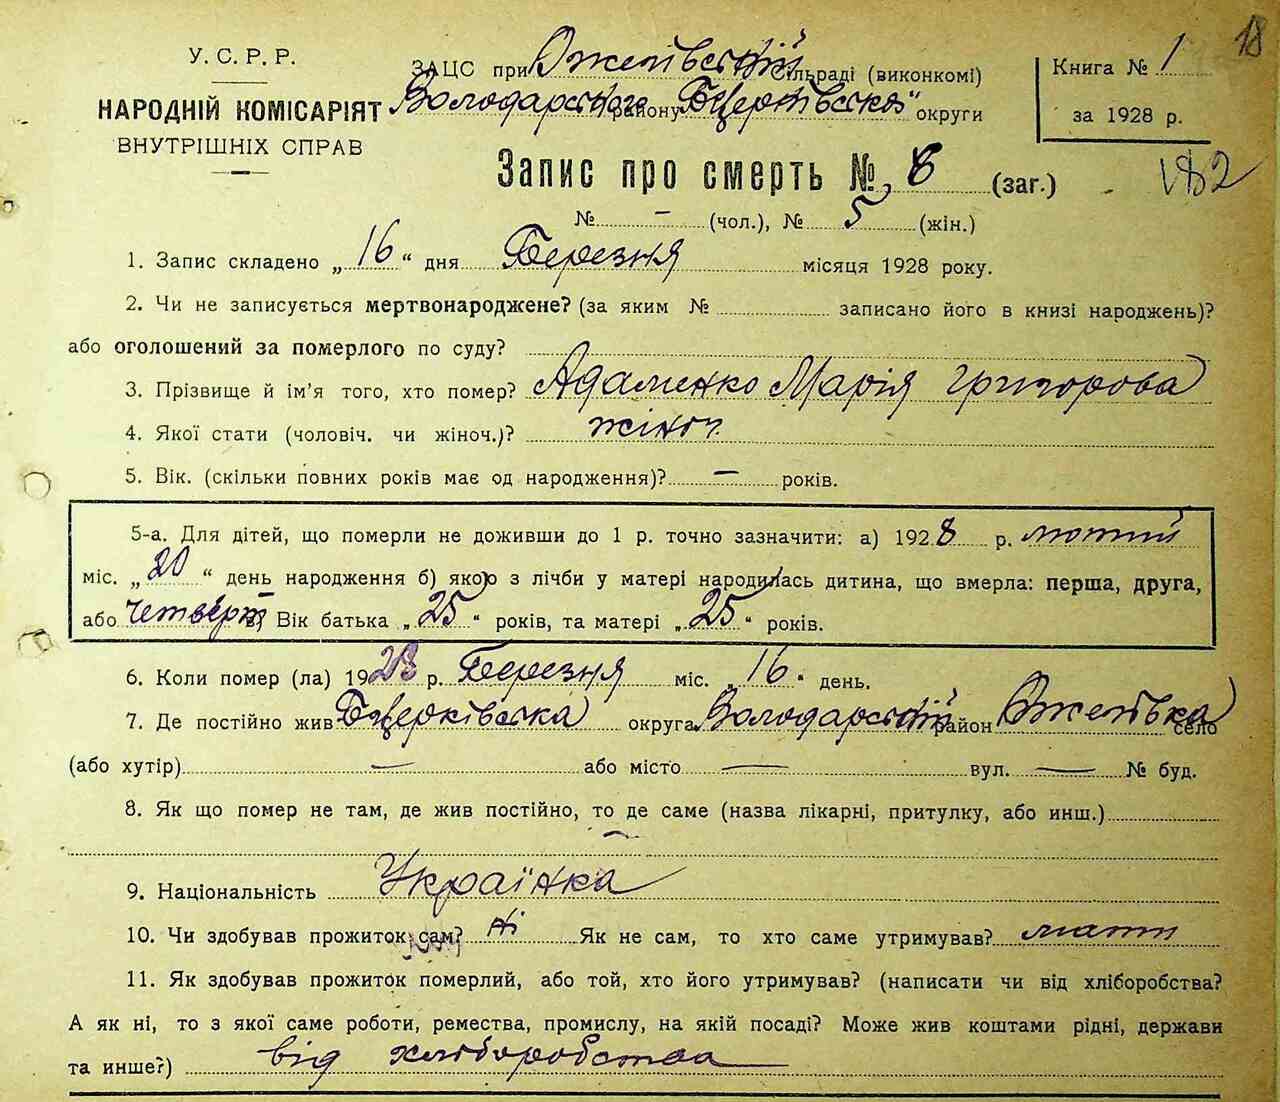 18
У. С. Р. Р.
НАРОДНІЙ КОМІСАРІЯТ
ВНУТРІШНІХ СПРАВ
ЗАЦС при Ожегівській Сільраді (виконкомі)
Володарського району "Бцерківська" округи
Книга № 1
за 1928 р.
182
Запис про смерть № 6 (заг.)
№ – (чол.), № 5 (жін.)
1. Запис складено „16“ дня Березня місяця 1928 року.
2. Чи не записується мертвонароджене? (за яким № записано його в книзі народжень)?
або оголошений за померлого по суду?
3. Прізвище й ім'я того, хто помер? Адаменко Марія Григорова
4. Якої стати (чоловіч. чи жіноч.)? жіноч.
5. Вік. (скільки повних років має од народження)? – років.
5-а. Для дітей, що померли не доживши до 1 р. точно зазначити: а) 1928 р. лютий
міс. „20“ день народження б) якою з лічби у матері народилась дитина, що вмерла: перша, друга,
або четверта Вік батька „25“ років, та матері „25“ років.
6. Коли помер (ла) 1928 р. Березня міс. „16“ день.
7. Де постійно жив Бцерківська округа Володарський район Ожегівка село
(або хутір) — або місто — вул. — № буд.
8. Як що помер не там, де жив постійно, то де саме (назва лікарні, притулку, або инш.)
9. Національність Українка
10. Чи здобував прожиток сам? ні Як не сам, то хто саме утримував? мати
11. Як здобував прожиток померлий, або той, хто його утримував? (написати чи від хліборобства?
А як ні, то з якої саме роботи, ремества, промислу, на якій посаді? Може жив коштами рідні, держави
та инше?) від хліборобства